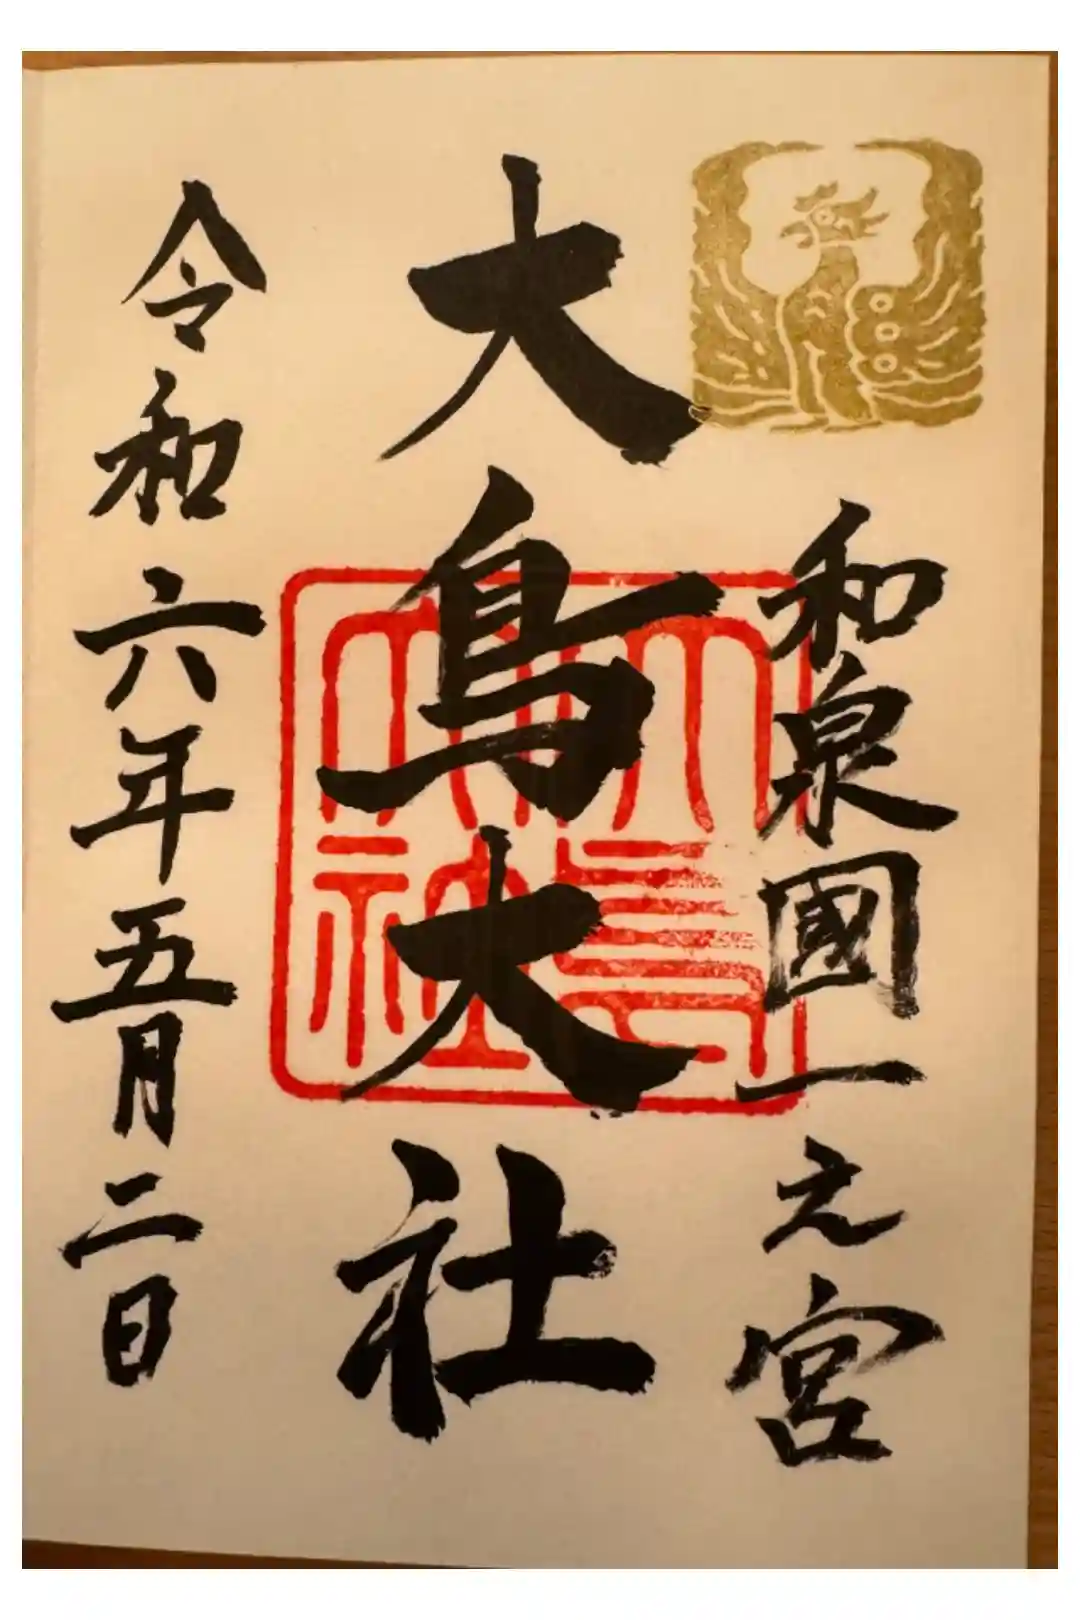 和泉國一之宮
大鳥大社
大鳥大社
令和六年五月二日